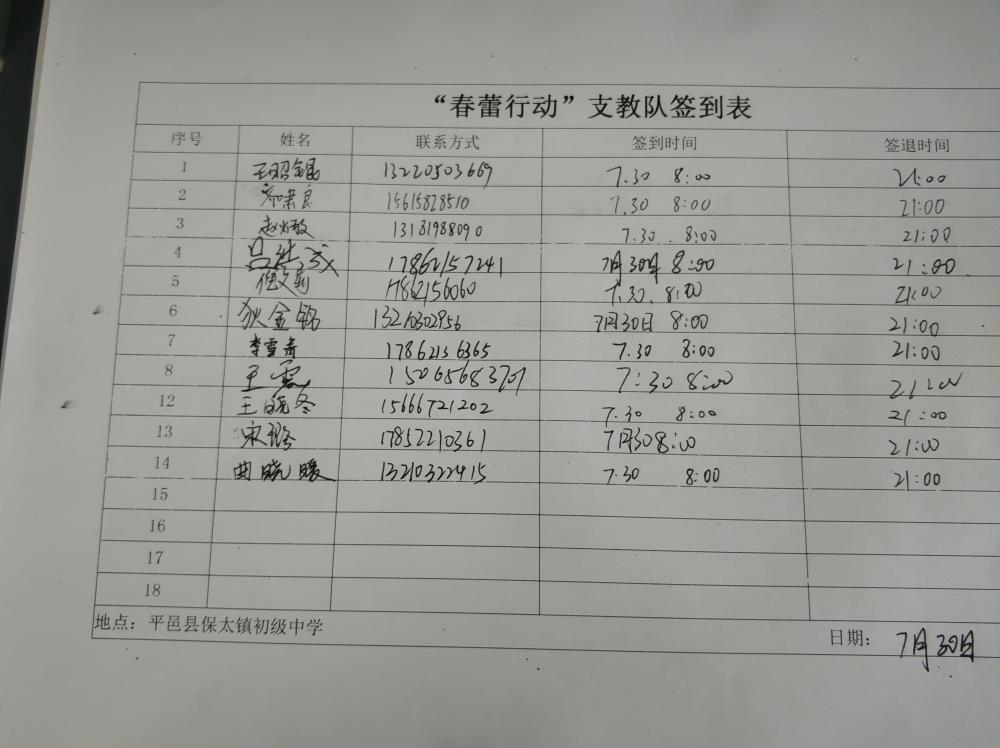 “春蕾行动”支教队签到表
序号 姓名 联系方式 签到时间 签退时间
1 王昭锟 13220503669 7.30 8:00 21:00
2 15615828510 7.30 8:00 21:00
3 13181988090 7.30 8:00 21:00
4 17862157241 7月30日 8:00 21:00
5 17862156060 7.30. 8:00 21:00
6 狄金铭 13210302956 7月30日 8:00 21:00
7 李雪青 17862136365 7.30 8:00 21:00
8 王震 7:30 8:00 21:00
12 王晓冬 15666721202 7.30 8:00 21:00
13 宋璐 17852210361 7月30 8:00 21:00
14 曲晓暖 13210322415 7.30 8:00 21:00
15
16
17
18
地点：平邑县保太镇初级中学
日期： 7月30日